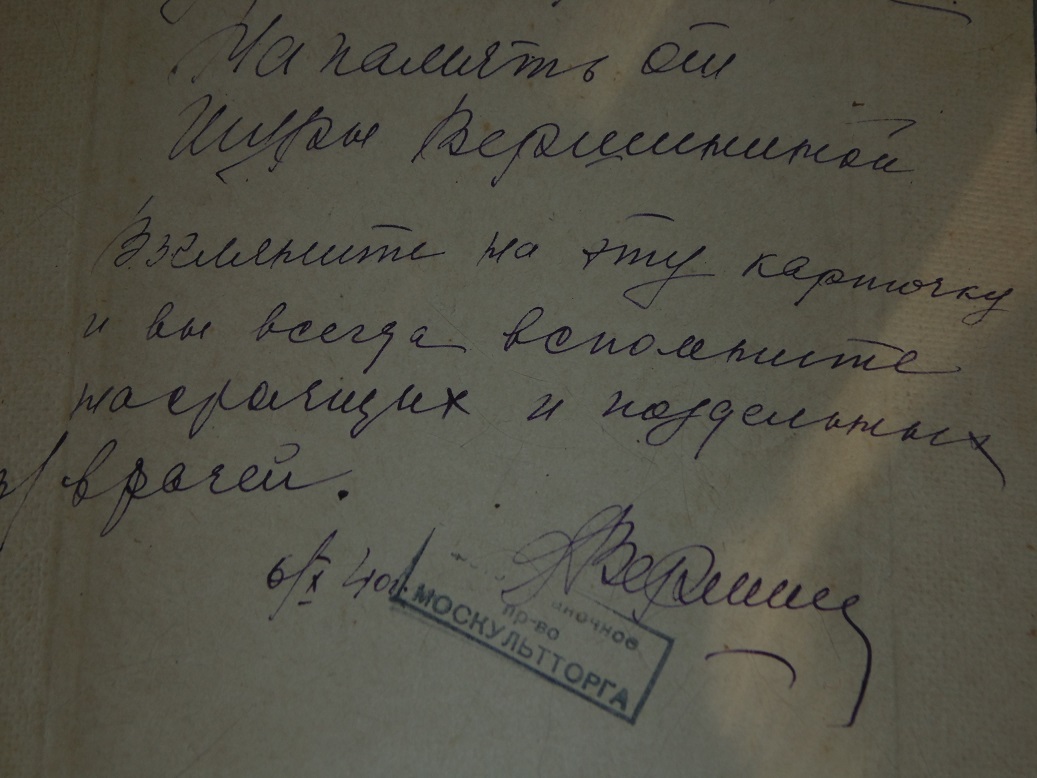 На память от
Шуры Вершининой
Взгляните на эту карточку
и вы всегда вспомните
настоящих и поддельных
врачей.
6/X 40г.
АВершин
пр-во
МОСКУЛЬТТОРГА